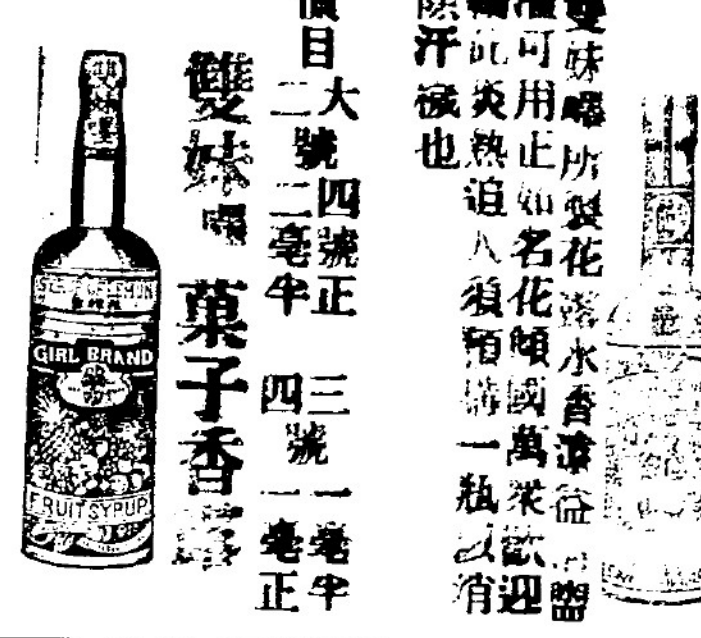 雙妹嚜所製花露水香濃益盥
可用止如名花傾國萬衆歡迎
此炎熱追人須預購一瓶以消
除汗穢也
價目
大號四毫正 三號一毫半
二號二毫半 四號一毫正
雙妹嚜 菓子香露
雙妹嚜
GIRL BRAND
FRUIT SYRUP